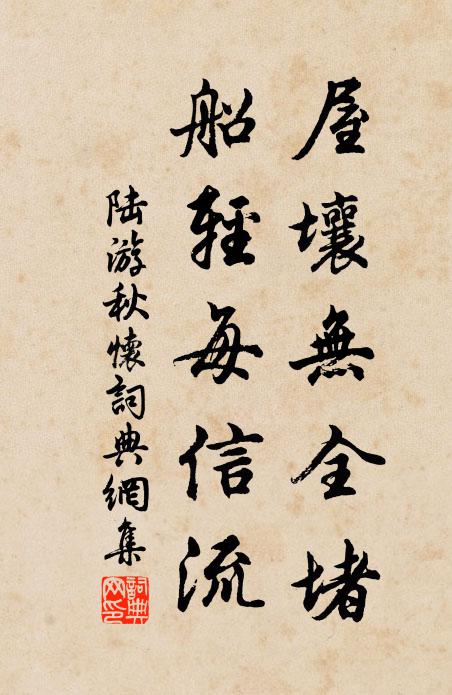 屋壞無全堵
船輕每信流
陆游秋懷詞典網集
詞典